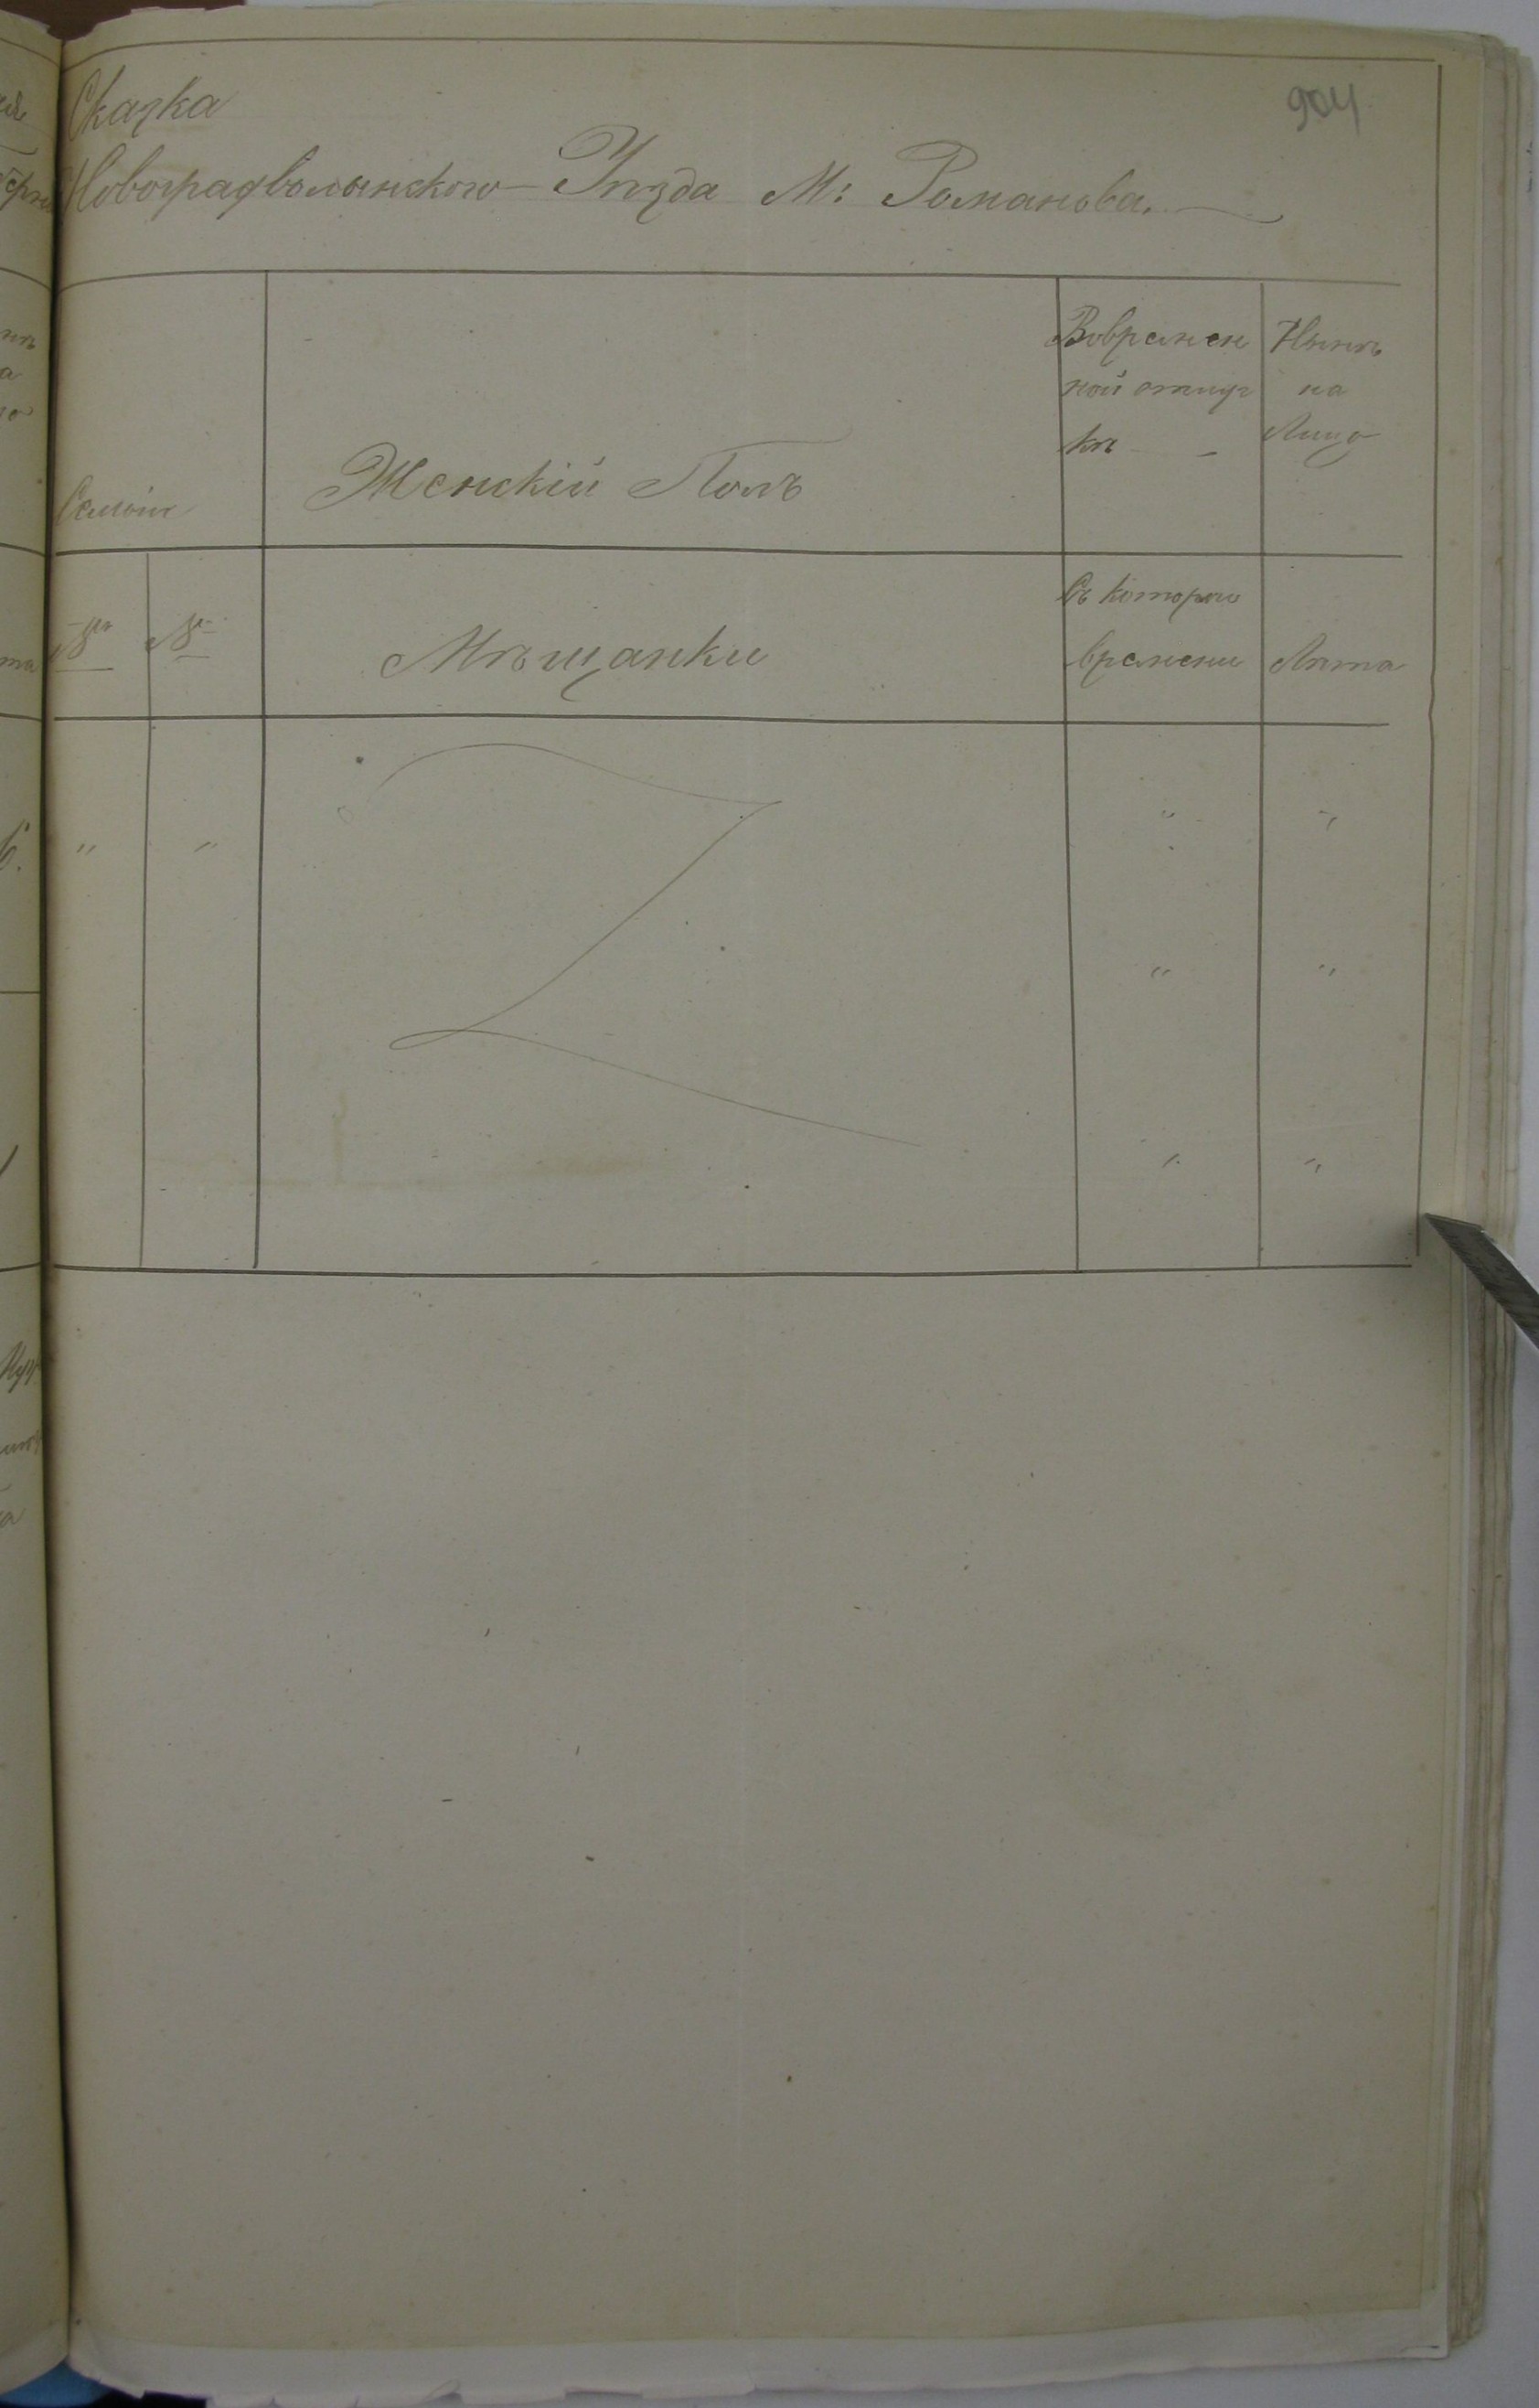 904
Сказка
Новоградволынского Уѣзда М: Романова.
Семьи
Женскій Полъ
Вовремен
ной отлуч
кѣ -
Нынѣ
на
Лицо
№
№
Мѣщанки
Съ которого
времени
Лѣта
" " " "
" "
" "